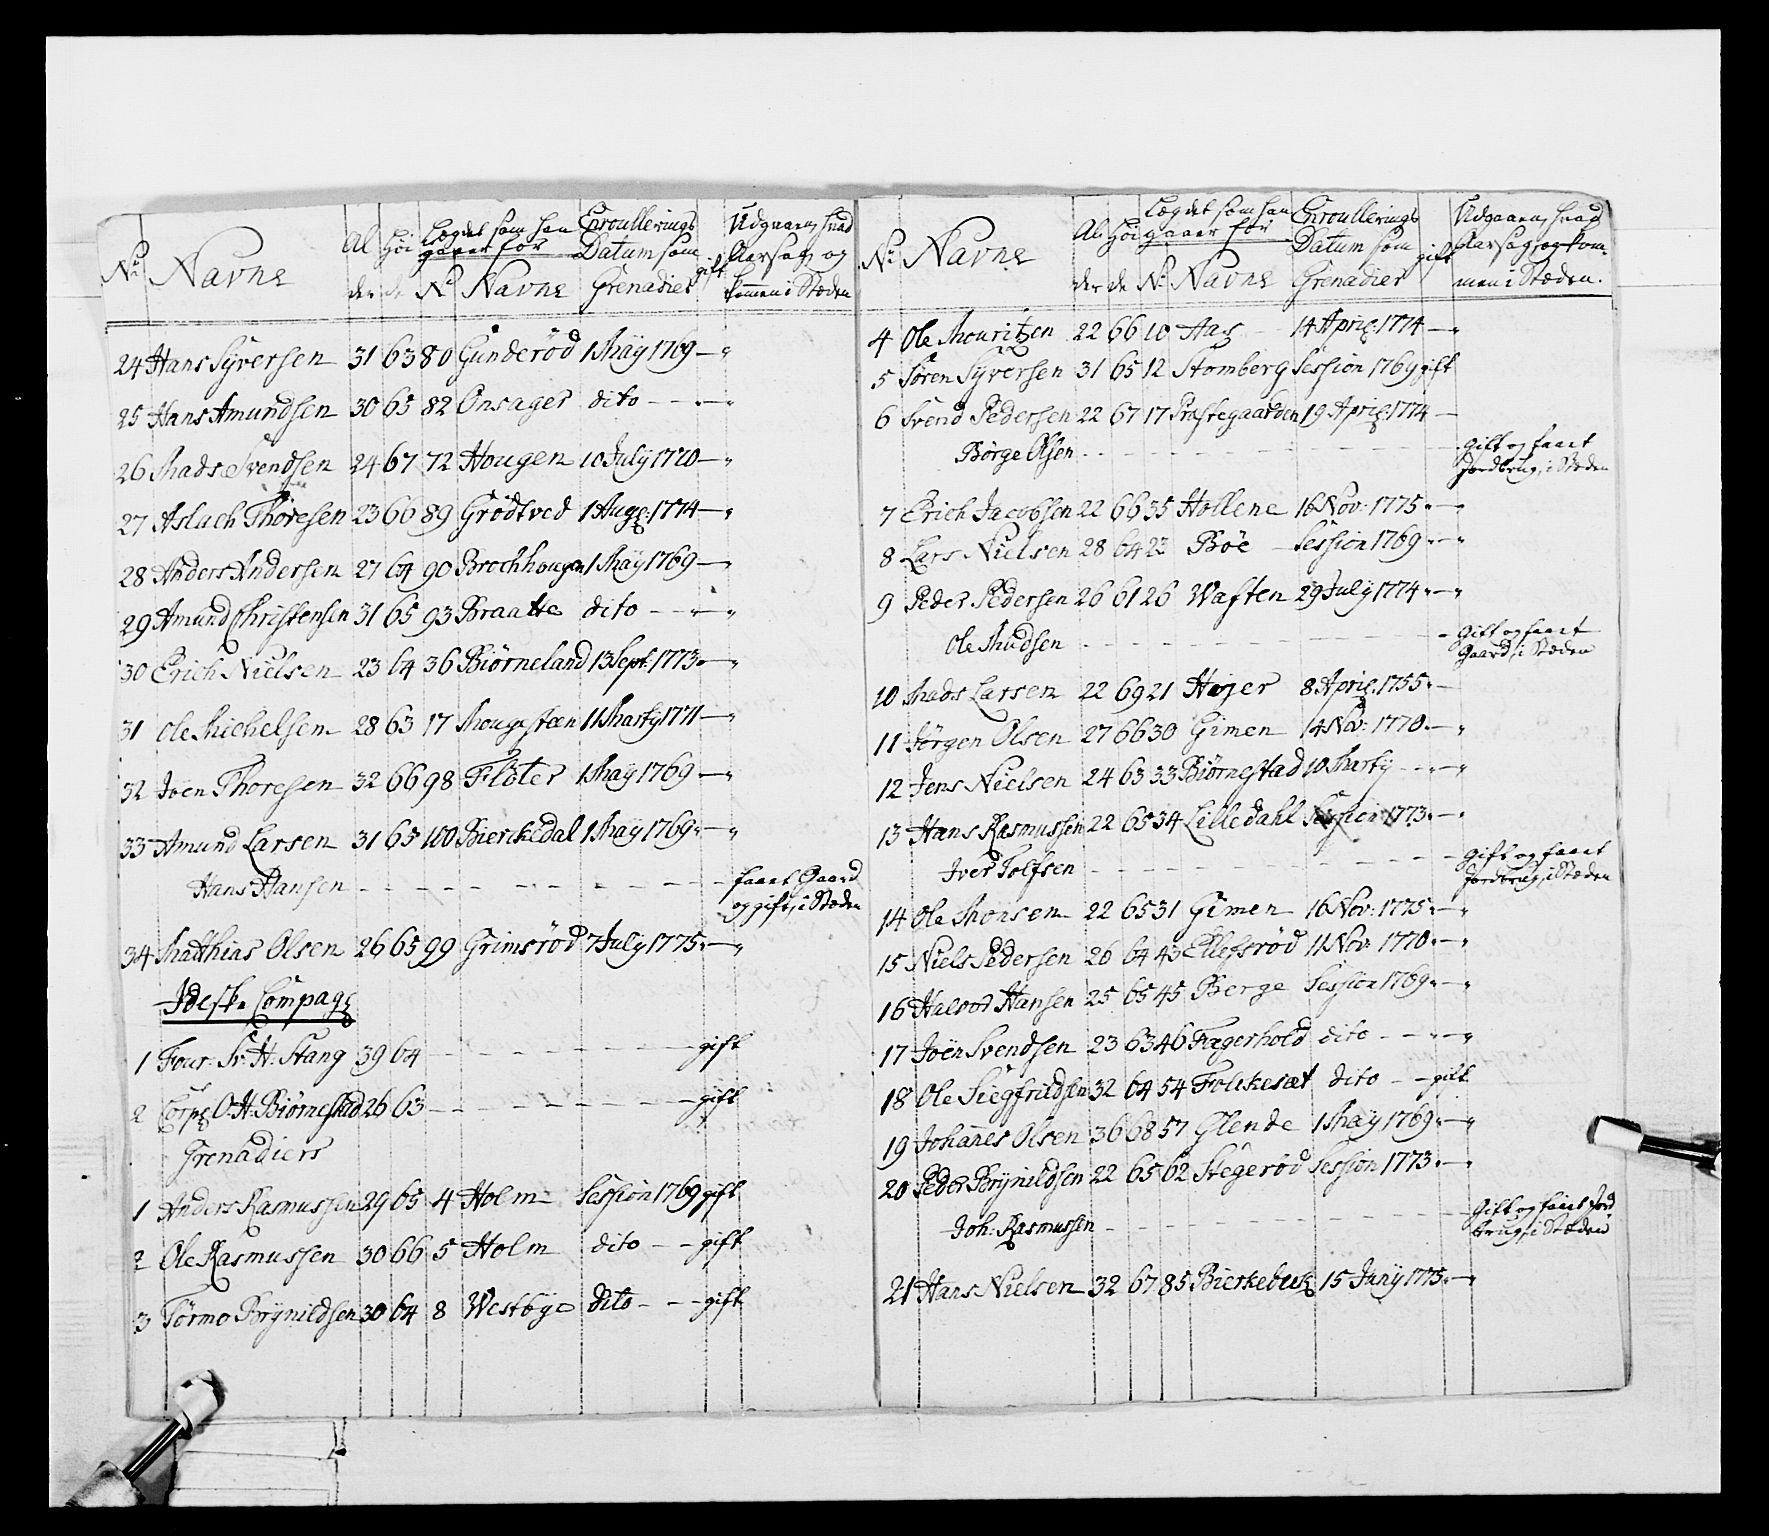 No Navne Alder Höide Lægdet som han gaaer for No Navne Enroullerings Datum som Grenadier gift Udgaaen, hvad Aarsag, og kommen i Stæden
24 Hans Syversen 31 63 80 Gunderöd 1 Maÿ 1769 — "
25 Hans Amundsen 30 65 82 Onsager dito - - - "
26 Mads Svendsen 24 67 72 Hougen 10 July 1770 — "
27 Aslach Thoresen 23 66 89 Grödtved 1 Aug: 1774 — "
28 Anders Andersen 27 64 90 Brochhougen 1 Maÿ 1769 — "
29 Amund Christensen 31 65 93 Braatte dito - - - "
30 Erich Nielsen 23 64 36 Biörneland 13 Sept: 1773 — "
31 Ole Michelsen 28 63 17 Mougstæn 11 Marty 1771 — "
32 Joen Thoresen 32 66 98 Flöter 1 Maÿ 1769 — "
33 Amund Larsen 31 65 100 Bierckedal 1 Maÿ 1769 — "
Hans Hansen - - - - - - - - faaet Gaard
og gift, i Stæden
34 Matthias Olsen 26 65 99 Grimsröd 7 July 1775 — "
Idesk. Compag:
1 Four: Sr. H: Stang 39 64 - - - - - - - gift
2 Corp: O. H. Biörnestad 26 63 - - - - - - - gift
Grenadiers
1 Anders Rasmussen 29 65 4 Holm Session 1769 gift
2 Ole Rasmussen 30 66 5 Holm dito - - gift
3 Tormo Brynildsen 30 64 8 Westbye dito - - - gift
No Navne Alder Höide Lægdet som han gaaer for No Navne Enroullerings Datum som Grenadier gift Udgaaen, hvad Aarsag, og kommen i Stæden.
4 Ole Mouritzen 22 66 10 Aas 14 April: 1774 — "
5 Sören Syversen 31 65 12 Stomberg Session 1769 gift
6 Svend Pedersen 22 67 17 Præstegaarden 19 April: 1774 —
Börge Olsen - - - - - - - - gift og faaet
Jordbrug, i Stæden
7 Erich Jacobsen 22 66 35 Hollene 16 Nov: 1775 — "
8 Lars Nielsen 28 64 23 Böe — Session 1769 — "
9 Peder Pedersen 26 61 26 Waften 29 July 1774 — "
Ole Knudsen - - - - - - - - gift og faaet
Gaard, i Stæden
10 Mads Larsen 22 69 21 Høyer 8 April: 1755 —
11 Jörgen Olsen 27 66 30 Gimen 14 Nov: 1770 — "
12 Jens Nielsen 24 63 33 Biörnestad 10 Marty - - - "
13 Hans Rasmussen 22 65 34 Lilledahl Session 1773 — "
Iver Tolfsen - - - - - - - - gift og faaet
Jordbrug, i Stæden
14 Ole Monsen 22 65 31 Gimen 16 Nov: 1775 — "
15 Niels Pedersen 26 64 43 Ellefsröd 11 Nov 1770 — "
16 Halvor Hansen 25 65 45 Berge Session 1769 — "
17 Joën Svendsen 23 63 46 Fagerhold dito - - - "
18 Ole Siegfriedsen 32 64 54 Folckesæt dito - - gift
19 Johanes Olsen 36 68 57 Glende 1 Maÿ 1769 — "
20 Peder Brynildsen 22 65 62 Stegeröd Session 1773 — "
Joh: Rasmussen - - - - - - - - gift og faaet Jord
brug, i Stæden
21 Hans Nielsen 32 67 85 Bierkebek 15 Juny 1775 — "